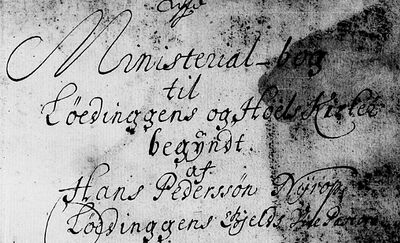 Ministerial-bog
til
Løedinggens og Hoels Kirker
begÿndt
af
Hans Pedersøn Nÿrop
Løddinggens Gjelds